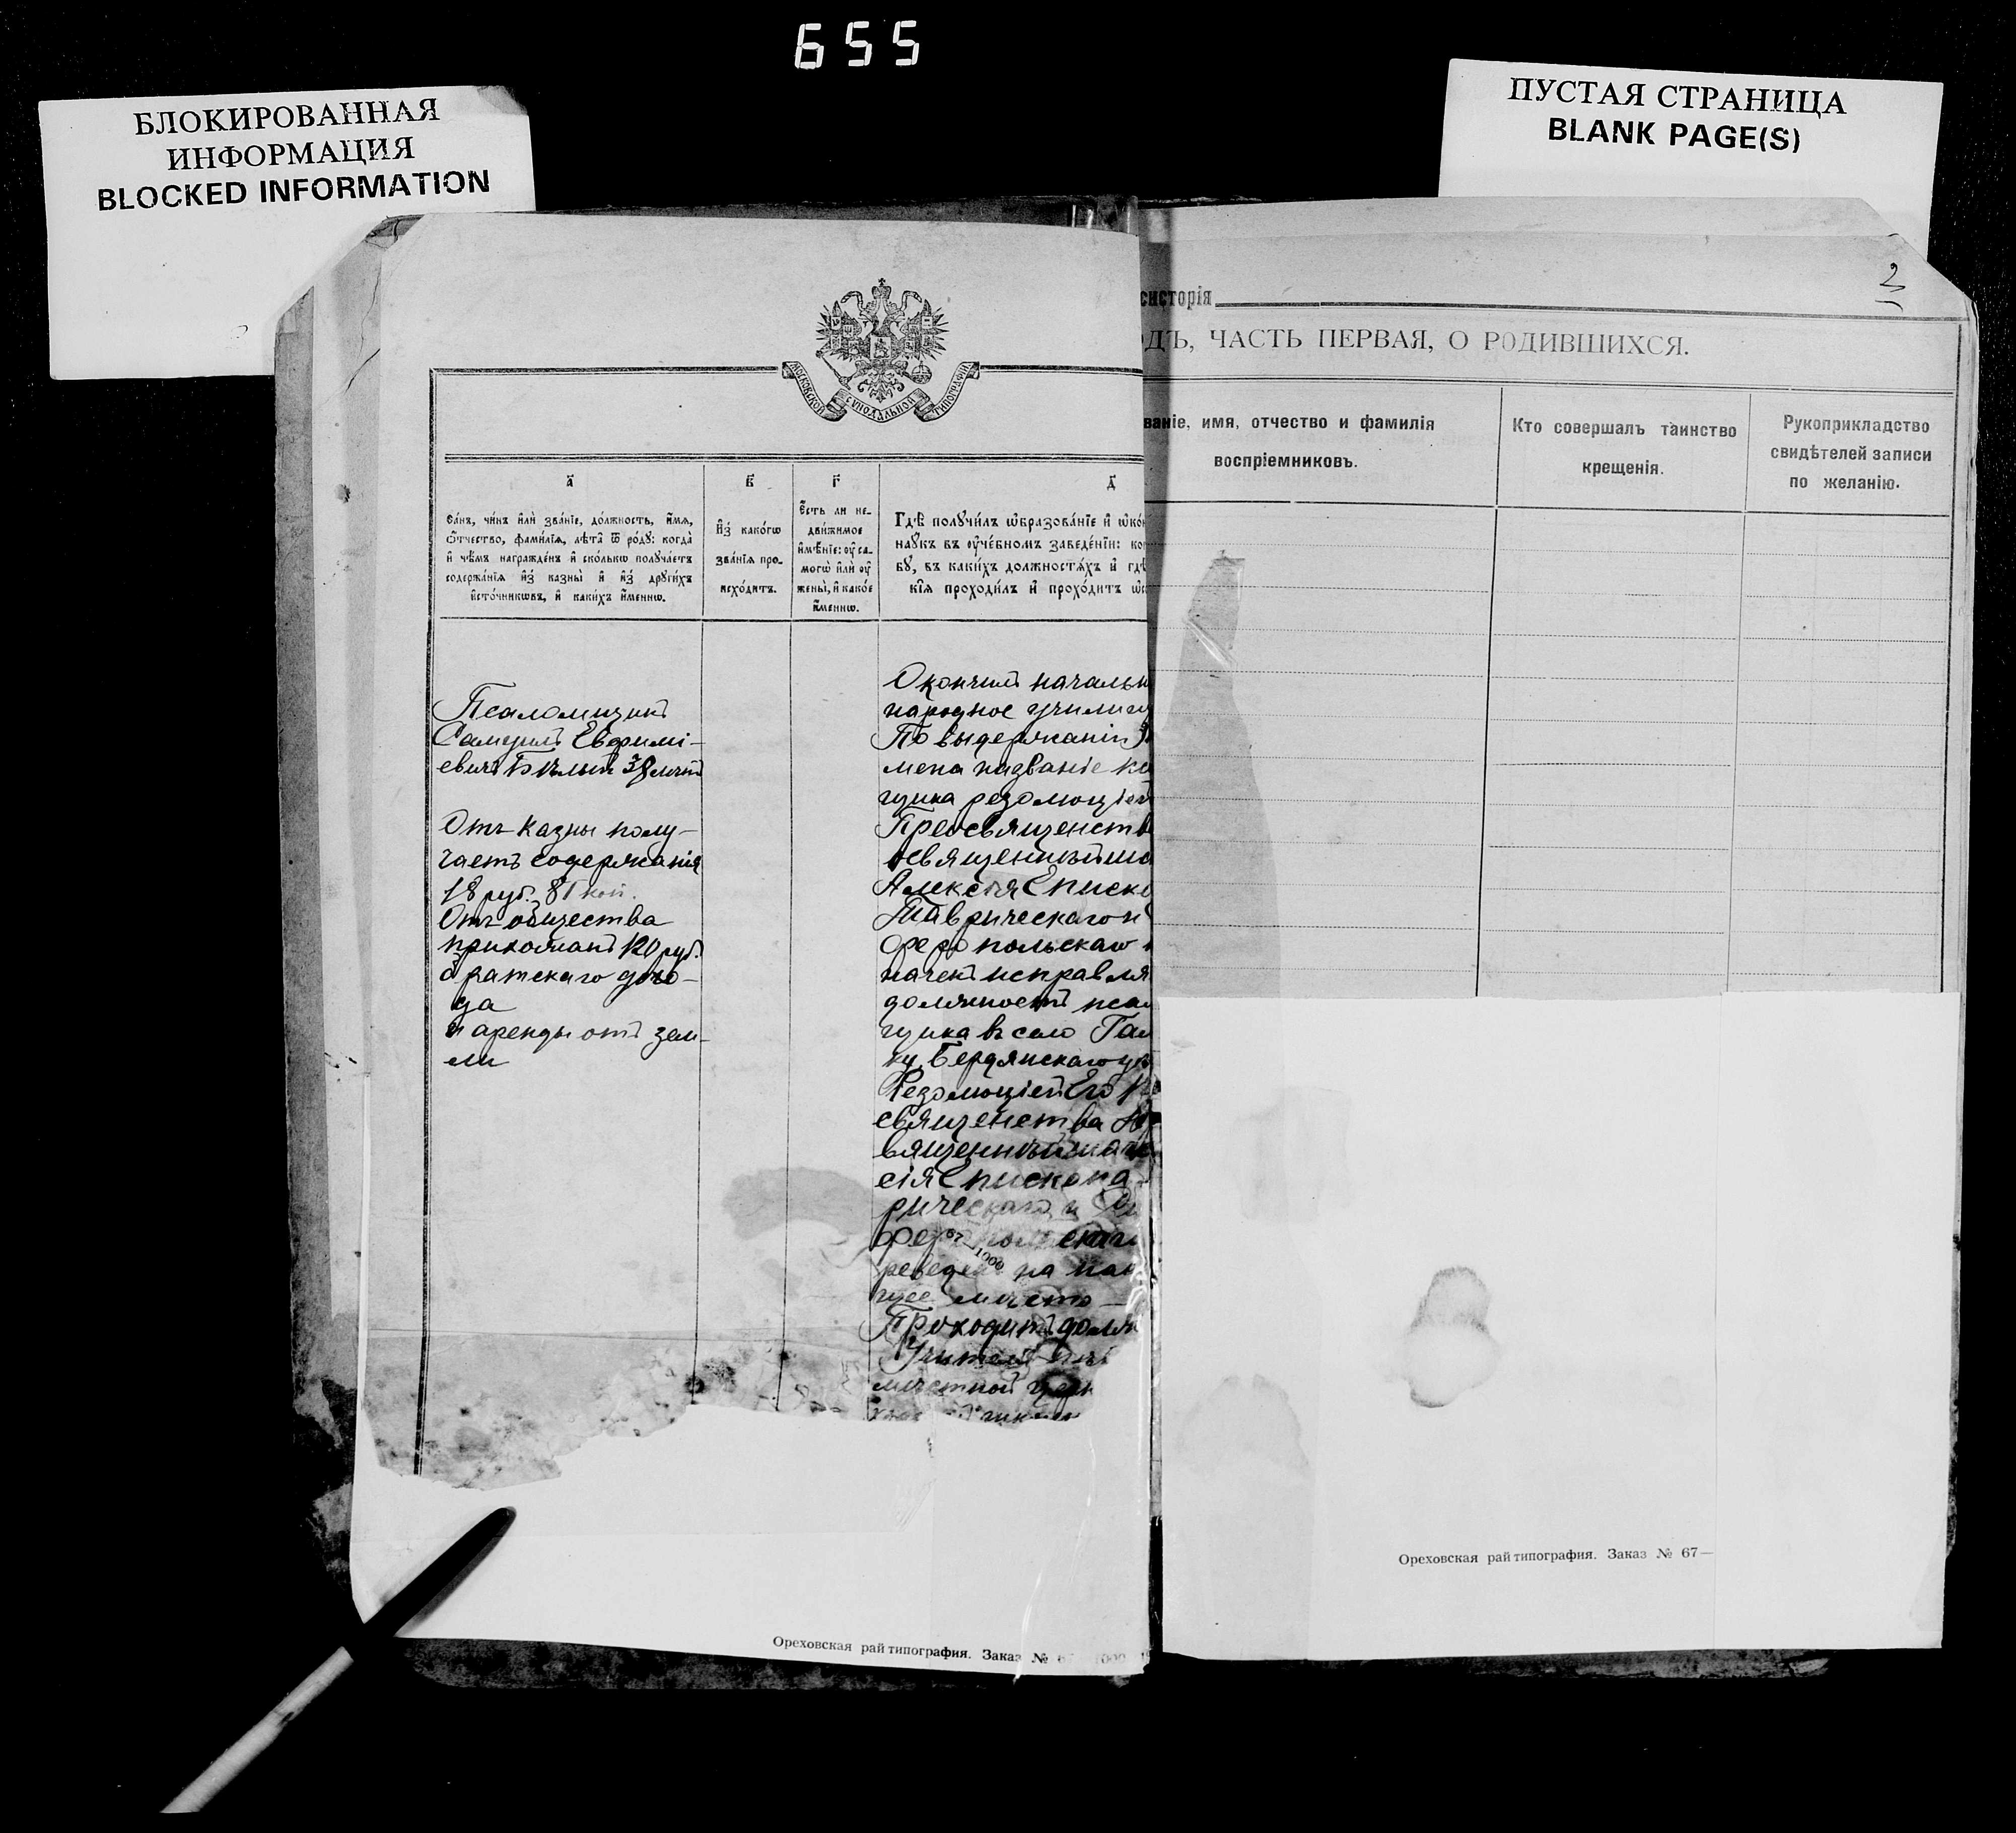 655
БЛОКИРОВАННАЯ
ИНФОРМАЦИЯ
BLOCKED INFORMATION
ПУСТАЯ СТРАНИЦА
BLANK PAGE(S)
МОСКОВСКОЙ СѴНОДАЛЬНОЙ ТИПОГРАФІИ
а҃
Са́нъ, чи́нъ и҆лѝ зва́нїе, до́лжность, и҆́мѧ,
ѻ҆́тчество, фами́лїѧ, лѣ́та ѿ ро́ду: когда̀
и҆ чѣ́мъ награжде́нъ и҆ ско́лькѡ получа́етъ
содержа́нїѧ и҆з̾ казны̀ и҆ и҆з̾ други́хъ
и҆сто́чникѡвъ, и҆ каки́хъ и҆́меннѡ.
в҃
И҆з̾ како́гѡ
зва́нїѧ про-
исхо́дитъ.
г҃
Е҆́сть ли не-
дви́жимое
и҆мѣ́нїе: ᲂу҆ са-
могѡ̀ и҆лѝ ᲂу҆
жены̀, и҆ како́е
и҆́меннѡ.
д҃
Гдѣ̀ получи́лъ ѡ҆бразова́нїе и҆ ѡ҆ко́н
наꙋ́къ въ ᲂу҆че́бномъ заведе́нїи: ко
бꙋ, въ каки́хъ должностѧ́хъ и҆ гдѣ
кїѧ проходи́лъ и҆ прохо́дитъ ѡ҆с
Псаломщикъ
Самуилъ Евфимі-
евичъ Бѣлый 38 лѣтъ
Отъ казны полу-
чаетъ содержанія
18 руб. 81 коп.
Отъ общества
прихожанъ 120 руб.
братскаго дохо-
да
и аренды отъ зем-
ли
Окончилъ начальн
народное училищ
По выдержаніи
мена названіе
щика резолюціей
Преосвященств
освященнѣйша
Алексія Еписко
Таврическаго и
ферополькаго
начен исправля
должность псал
щика въ село
ку, Бердянскаго уѣ
Резолюціей Его
священства
вященнѣйшаго
сія Епископа
рическаго и Си
фер
реведен на нас
щее мѣсто
Проходитъ долж
Учителя
мѣстной церк
67—1000
систорія
3
ДЪ, ЧАСТЬ ПЕРВАЯ, О РОДИВШИХСЯ.
ваніе, имя, отчество и фамилія
воспріемниковъ.
Кто совершалъ таинство
крещенія.
Рукоприкладство
свидѣтелей записи
по желанію.
Ореховская райтипография. Заказ № 67—
Ореховская райтипография. Заказ № 67 1000